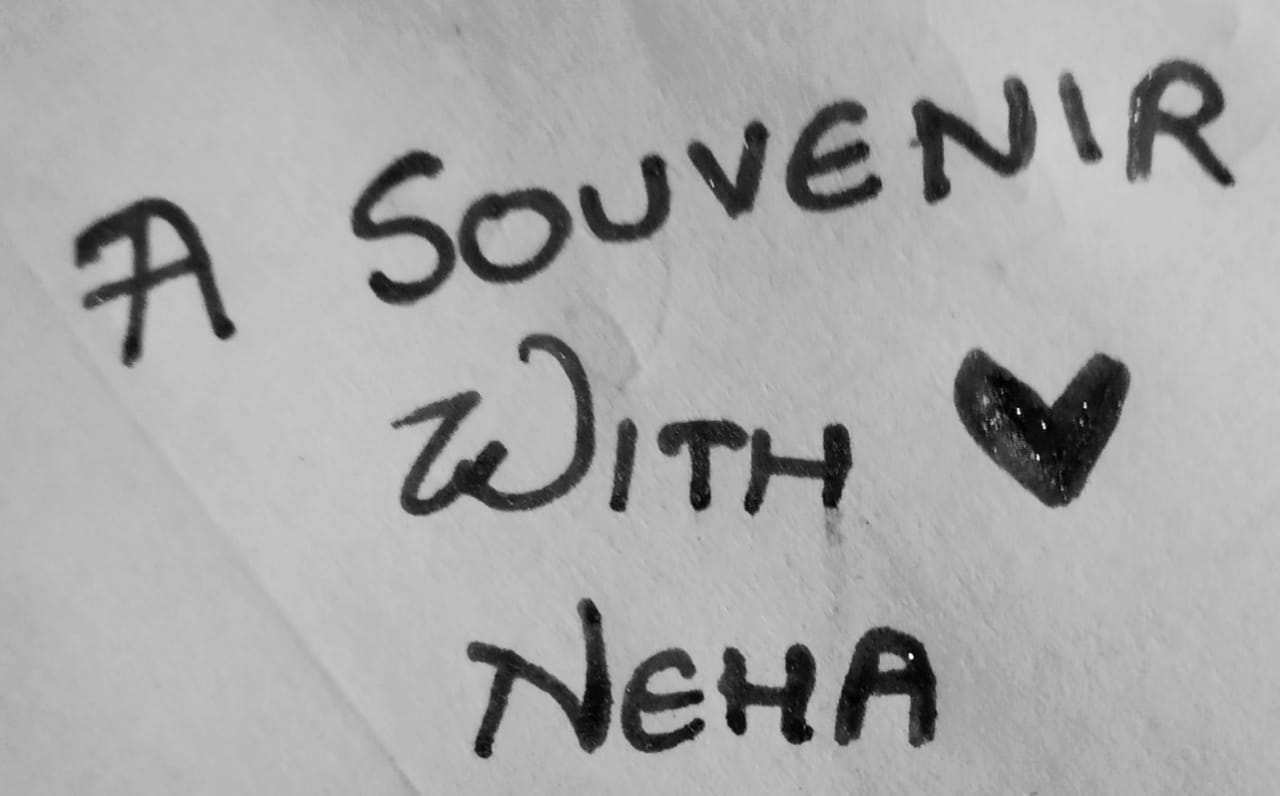 A SOUVENIR
WITH ♥
NEHA